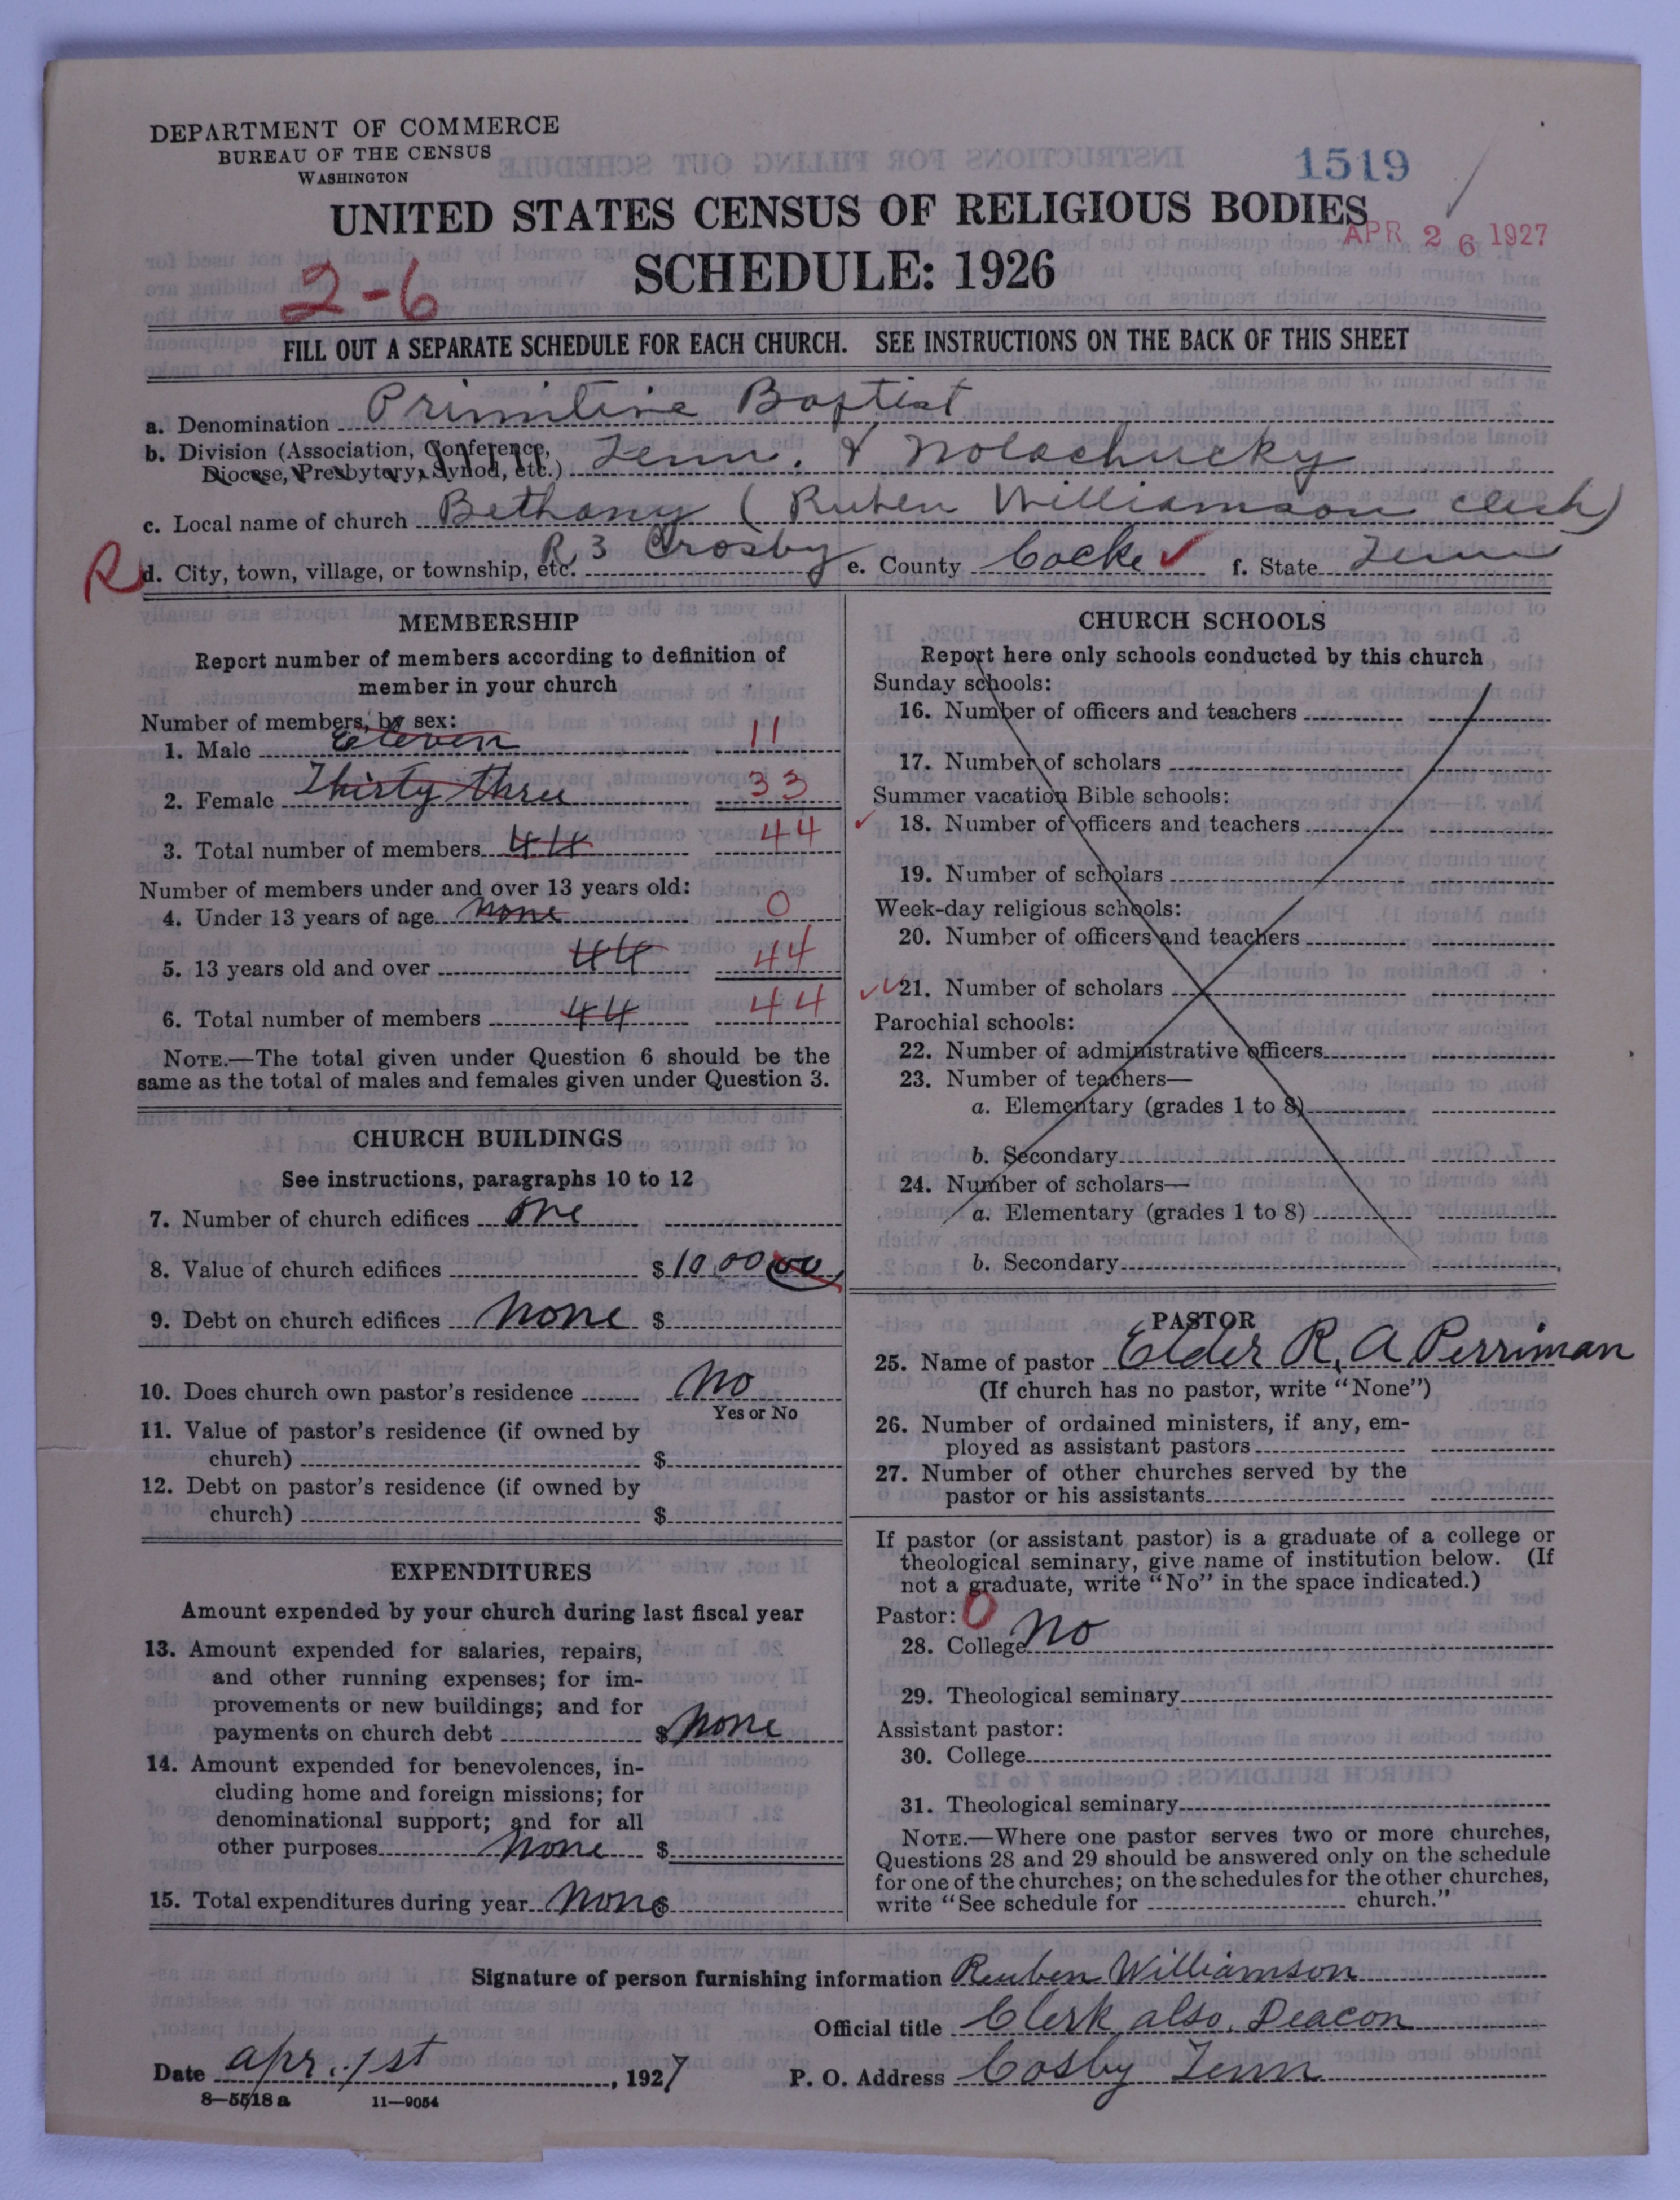 DEPARTMENT OF COMMERCE
BUREAU OF THE CENSUS
WASHINGTON
1519
UNITED STATES CENSUS OF RELIGIOUS BODIES
APR 26 1927
SCHEDULE: 1926
2-6
FILL OUT A SEPARATE SCHEDULE FOR EACH CHURCH. SEE INSTRUCTIONS ON THE BACK OF THIS SHEET
a. Denomination Primitive Baptist
b. Division (Association, Conference, Diocese, Presbytery, Synod, etc.) Tenn. & Nolachucky
c. Local name of church Bethany (Ruben Williamson clerk)
R d. City, town, village, or township, etc. R 3 Crosby e. County Cocke f. State Tenn
MEMBERSHIP
Report number of members according to definition of
member in your church
Number of members, by sex:
1. Male Eleven 11
2. Female Thirty three 33
3. Total number of members 44 44
Number of members under and over 13 years old:
4. Under 13 years of age none 0
5. 13 years old and over 44 44
6. Total number of members 44 44
NOTE.—The total given under Question 6 should be the
same as the total of males and females given under Question 3.
CHURCH BUILDINGS
See instructions, paragraphs 10 to 12
7. Number of church edifices one
8. Value of church edifices $ 1000 00
9. Debt on church edifices none $
10. Does church own pastor's residence No
Yes or No
11. Value of pastor's residence (if owned by
church) $
12. Debt on pastor's residence (if owned by
church) $
EXPENDITURES
Amount expended by your church during last fiscal year
13. Amount expended for salaries, repairs,
and other running expenses; for im-
provements or new buildings; and for
payments on church debt $ none
14. Amount expended for benevolences, in-
cluding home and foreign missions; for
denominational support; and for all
other purposes none $
15. Total expenditures during year none $
CHURCH SCHOOLS
Report here only schools conducted by this church
Sunday schools:
16. Number of officers and teachers
17. Number of scholars
Summer vacation Bible schools:
18. Number of officers and teachers
19. Number of scholars
Week-day religious schools:
20. Number of officers and teachers
21. Number of scholars
Parochial schools:
22. Number of administrative officers
23. Number of teachers—
a. Elementary (grades 1 to 8)
b. Secondary
24. Number of scholars—
a. Elementary (grades 1 to 8)
b. Secondary
PASTOR
25. Name of pastor Elder R. A Perriman
(If church has no pastor, write "None")
26. Number of ordained ministers, if any, em-
ployed as assistant pastors
27. Number of other churches served by the
pastor or his assistants
If pastor (or assistant pastor) is a graduate of a college or
theological seminary, give name of institution below. (If
not a graduate, write "No" in the space indicated.)
Pastor: 0
28. College No
29. Theological seminary
Assistant pastor:
30. College
31. Theological seminary
NOTE.—Where one pastor serves two or more churches,
Questions 28 and 29 should be answered only on the schedule
for one of the churches; on the schedules for the other churches,
write "See schedule for church."
Signature of person furnishing information Reuben Williamson
Official title Clerk also, Deacon
Date apr. 1st, 1927 P. O. Address Cosby Tenn
8—5518 a 11—9054